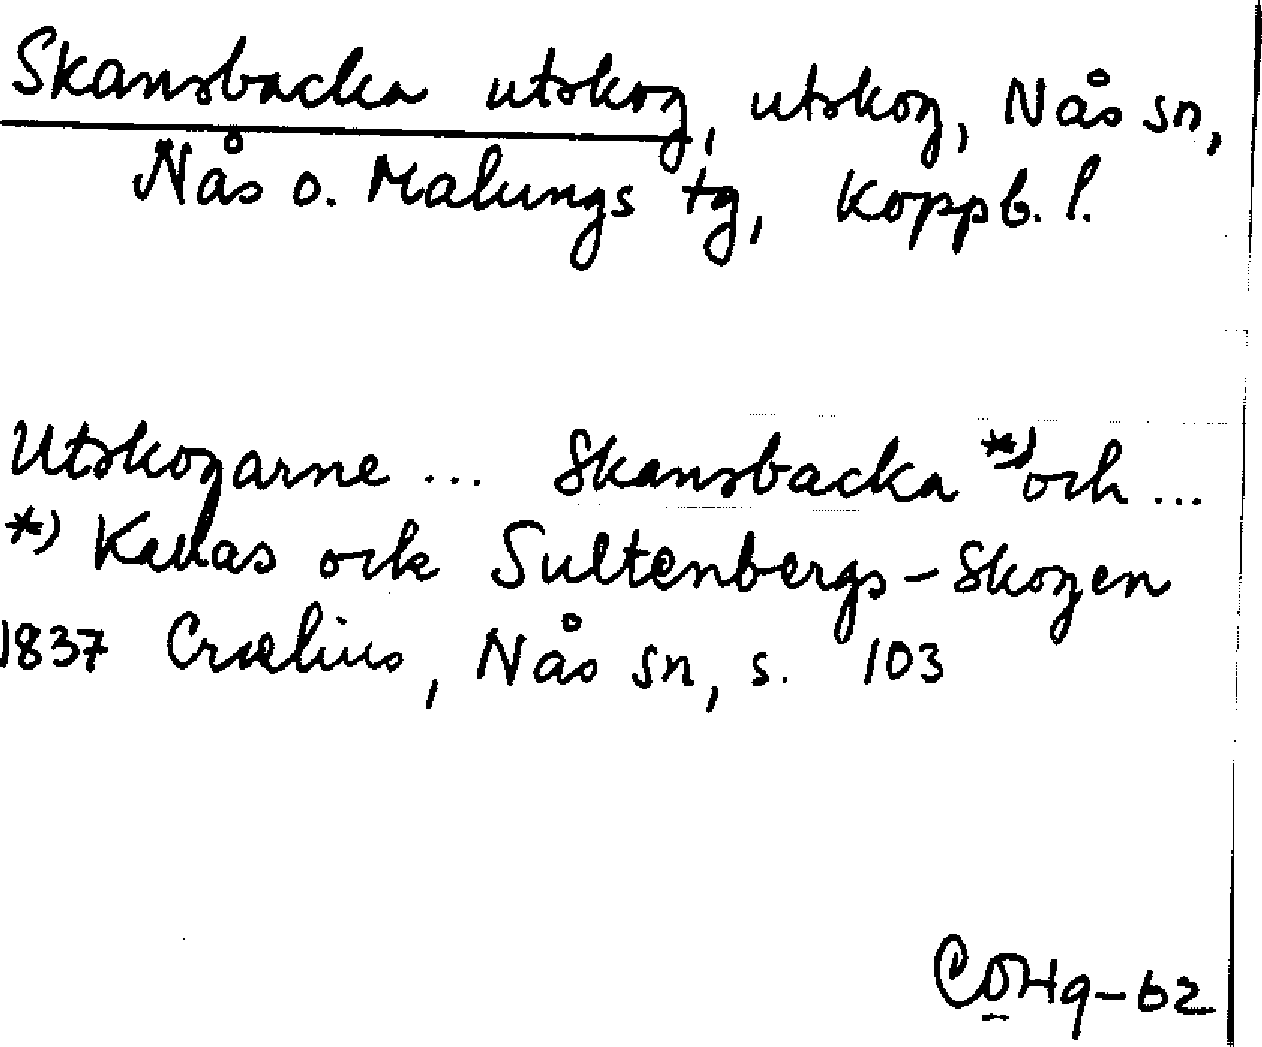 Skansbacka utskog, utskog, Nås sn,
Nås o. Malungs tg, Koppb. l.
Utskogarne ... Skansbacka *) och ...
*) Kallas ock Sultenbergs-Skogen
1837 Crælius, Nås sn, s. 103